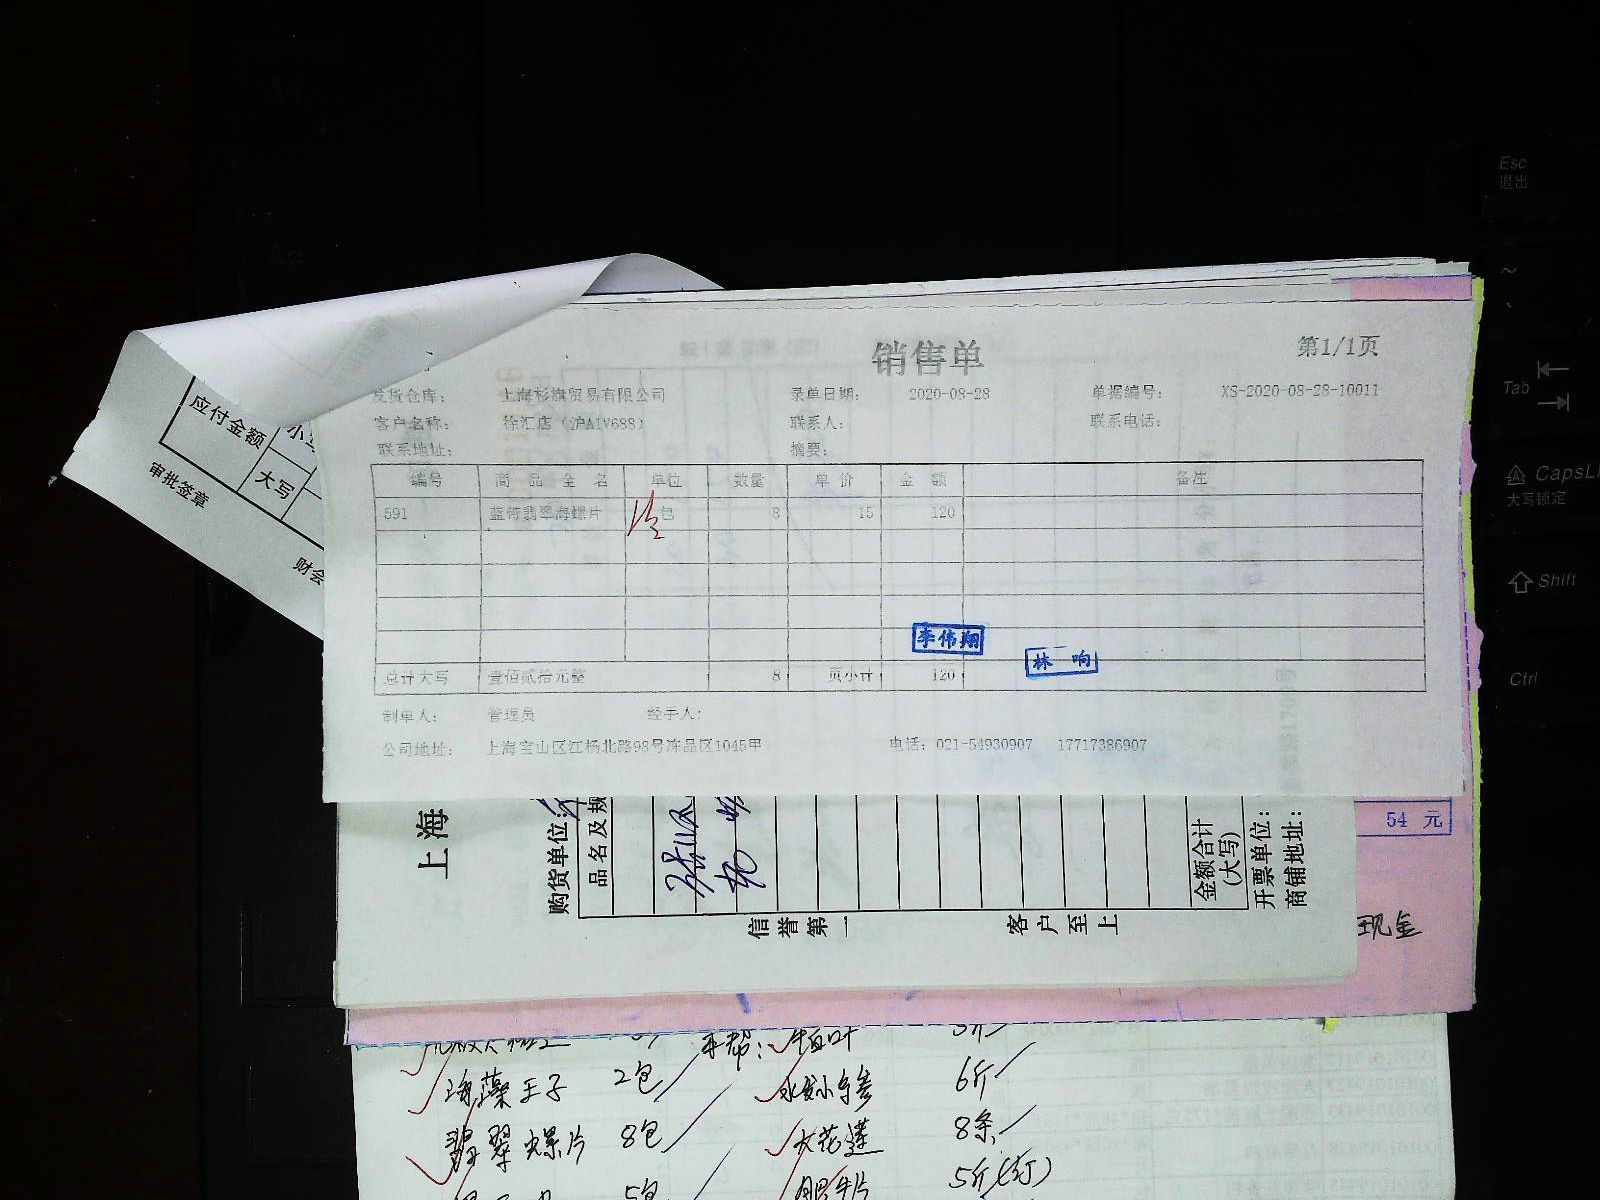 销售单
第1/1页
发货仓库： 上海杉旗贸易有限公司 录单日期： 2020-08-28 单据编号： XS-2020-08-28-10011
客户名称： 徐汇店（沪A1V688） 联系人： 联系电话：
联系地址： 摘要：
编号 商品全名 单位 数量 单价 金额 备注
591 蓝帝翡翠海螺片 包 8 15 120
李伟翔
林响
总计大写 壹佰贰拾元整 8 页小计 120
制单人： 管理员 经手人：
公司地址： 上海宝山区江杨北路98号冻品区1045甲 电话：021-54930907 17717386907
应付金额
大写
审批签章
财会
上海
购货单位：
品名及规
金额合计
(大写)
开票单位：
商铺地址：
信誉第一 客户至上
54 元
现金
海藻王子 2包
6斤
翡翠螺片 8包
8条
5包
5斤(订)
Esc
退出
~
Tab
CapsL
大写锁定
Shift
Ctrl